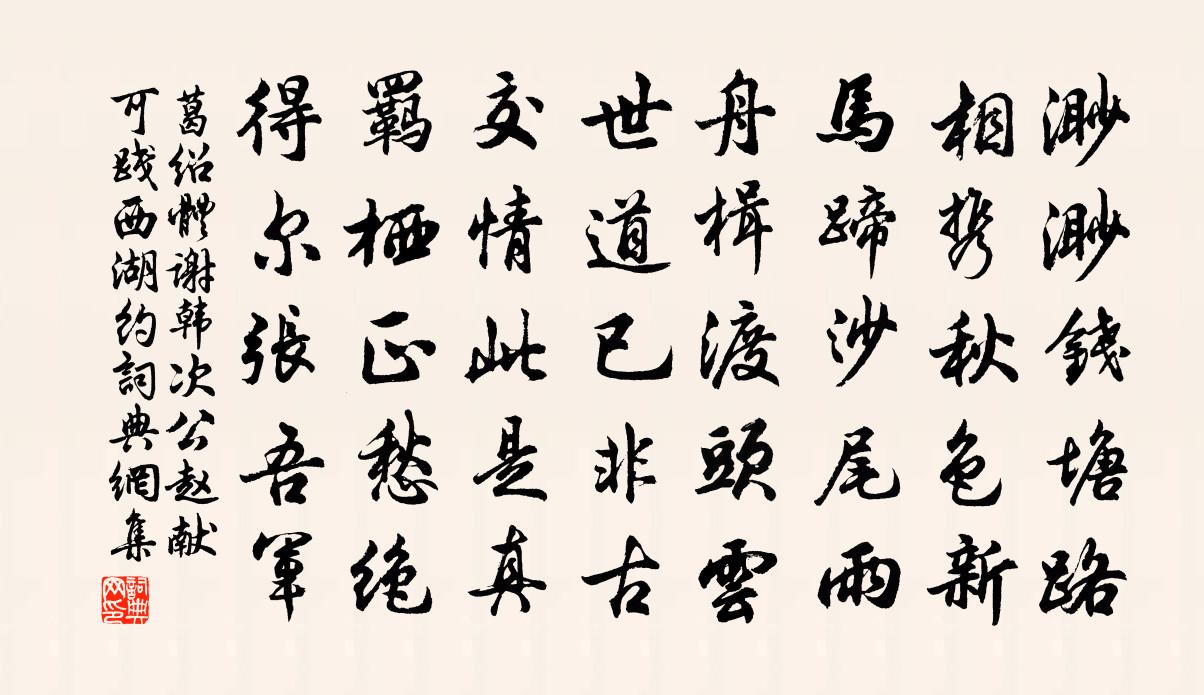 渺渺錢塘路
相携秋色新
馬蹄沙尾雨
舟楫渡頭雲
世道已非古
交情此是真
羈栖正愁绝
得尔張吾軍
葛绍體谢韩次公赵献
可踐西湖约詞典網集
詞典網印